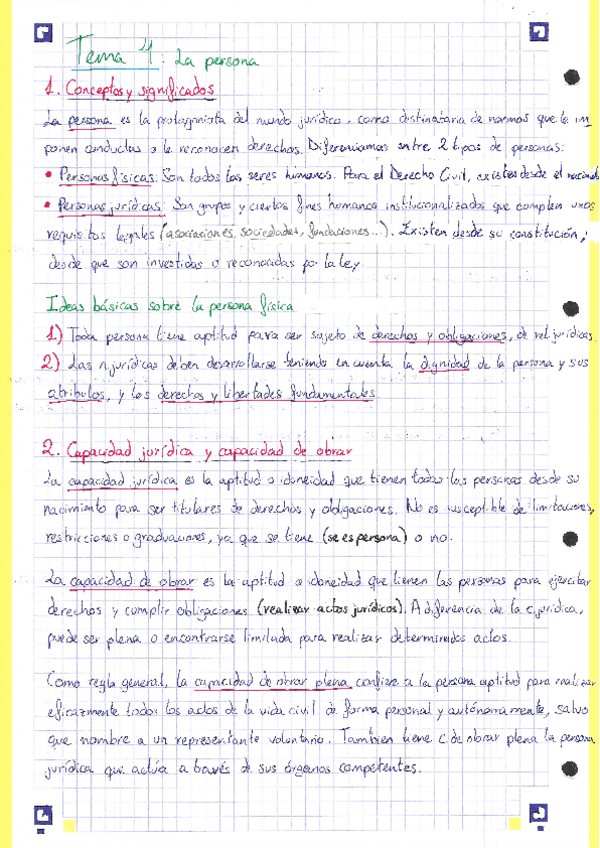 Tema 4: La persona
1. Conceptos y significados
La persona es la protagonista del mundo jurídico, como destinataria de normas que le im
ponen conductas o le reconocen derechos. Diferenciamos entre 2 tipos de personas:
• Personas físicas: Son todos los seres humanos. Para el Derecho Civil, existes desde el nacimie
• Personas jurídicas: Son grupos y ciertos fines humanos institucionalizados que cumplen unos
requisitos legales (asociaciones, sociedades, fundaciones...). Existen desde su constitución,
desde que son investidas o reconocidas por la ley.
Ideas básicas sobre la persona física
1) Toda persona tiene aptitud para ser sujeto de derechos y obligaciones, de rel. jurídicas
2) Las r. jurídicas deben desarrollarse teniendo en cuenta la dignidad de la persona y sus
atributos, y los derechos y libertades fundamentales
2. Capacidad jurídica y capacidad de obrar
La capacidad jurídica es la aptitud o idoneidad que tienen todas las personas desde su
nacimiento para ser titulares de derechos y obligaciones. No es susceptible de limitaciones,
restricciones o graduaciones, ya que se tiene (se es persona) o no.
La capacidad de obrar es la aptitud o idoneidad que tienen las personas para ejercitar
derechos y cumplir obligaciones (realizar actos jurídicos). A diferencia de la c. jurídica,
puede ser plena o encontrarse limitada para realizar determinados actos.
Como regla general, la capacidad de obrar plena confiere a la persona aptitud para realizar
eficazmente todos los actos de la vida civil de forma personal y autónomamente, salvo
que nombre a un representante voluntario. Tambien tiene c. de obrar plena la persona
jurídica que actúa a través de sus órganos competentes.